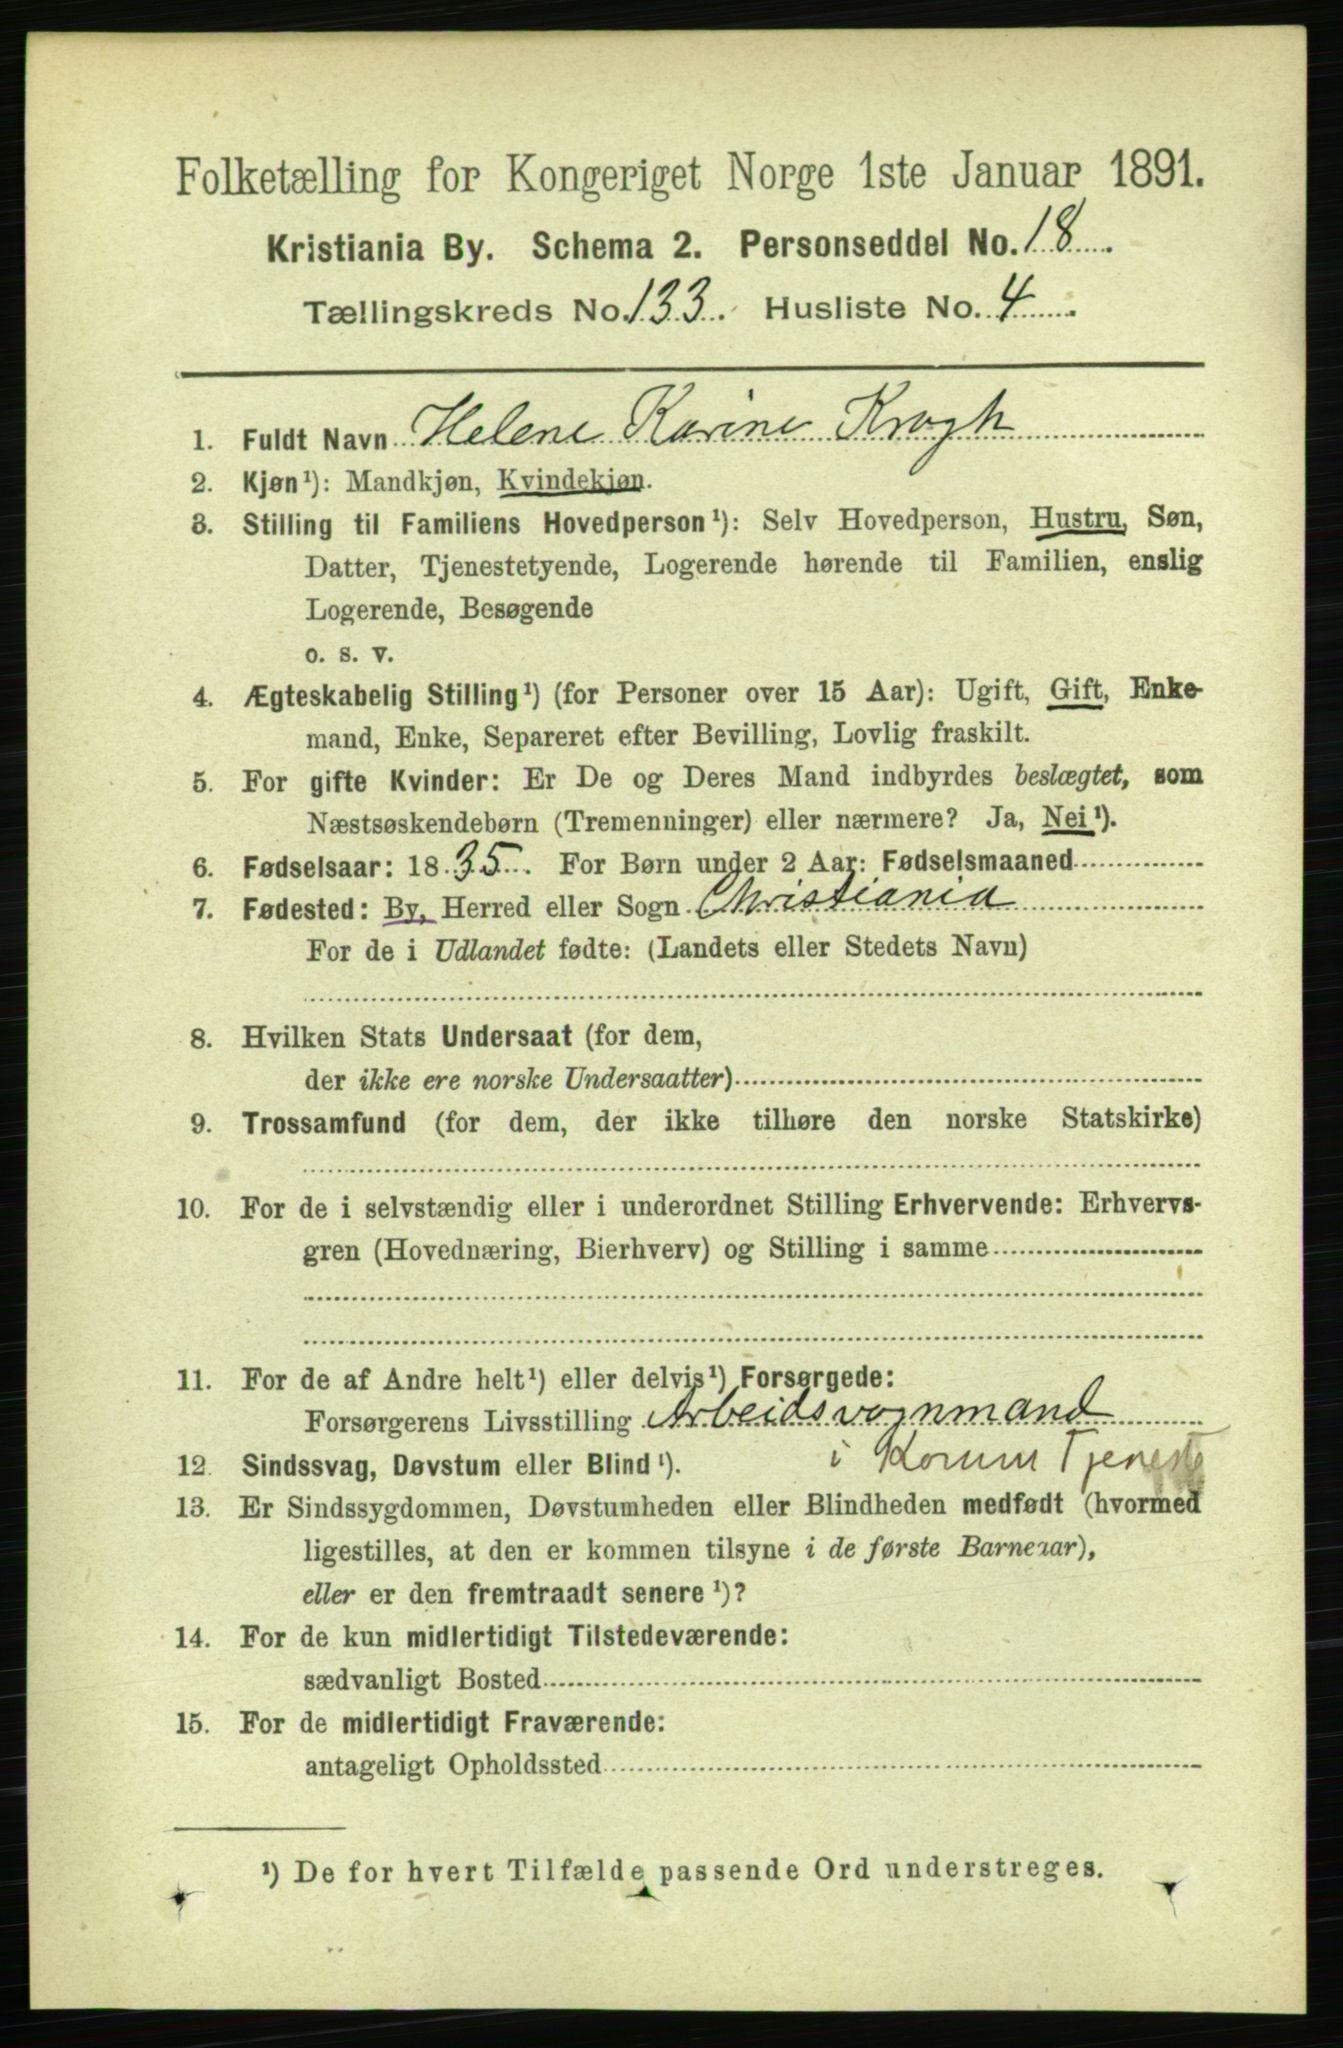 Folketælling for Kongeriget Norge 1ste Januar 1891.
Kristiania By. Schema 2. Personseddel No. 18.
Tællingskreds No. 133. Husliste No. 4.
1. Fuldt Navn Helene Karine Krogh
2. Kjøn¹): Mandkjøn, Kvindekjøn.
3. Stilling til Familiens Hovedperson¹): Selv Hovedperson, Hustru, Søn,
Datter, Tjenestetyende, Logerende hørende til Familien, enslig
Logerende, Besøgende
o. s. v.
4. Ægteskabelig Stilling¹) (for Personer over 15 Aar): Ugift, Gift, Enke-
mand, Enke, Separeret efter Bevilling, Lovlig fraskilt.
5. For gifte Kvinder: Er De og Deres Mand indbyrdes beslægtet, som
Næstsøskendebørn (Tremenninger) eller nærmere? Ja, Nei¹).
6. Fødselsaar: 1835. For Børn under 2 Aar: Fødselsmaaned
7. Fødested: By, Herred eller Sogn Christiania
For de i Udlandet fødte: (Landets eller Stedets Navn)
8. Hvilken Stats Undersaat (for dem,
der ikke ere norske Undersaatter)
9. Trossamfund (for dem, der ikke tilhøre den norske Statskirke)
10. For de i selvstændig eller i underordnet Stilling Erhvervende: Erhvervs-
gren (Hovednæring, Bierhverv) og Stilling i samme
11. For de af Andre helt¹) eller delvis¹) Forsørgede:
Forsørgerens Livsstilling Arbeidsvognmand
i Komm Tjeneste
12. Sindssvag, Døvstum eller Blind¹).
13. Er Sindssygdommen, Døvstumheden eller Blindheden medfødt (hvormed
ligestilles, at den er kommen tilsyne i de første Barneaar),
eller er den fremtraadt senere¹)?
14. For de kun midlertidigt Tilstedeværende:
sædvanligt Bosted
15. For de midlertidigt Fraværende:
antageligt Opholdssted
¹) De for hvert Tilfælde passende Ord understreges.